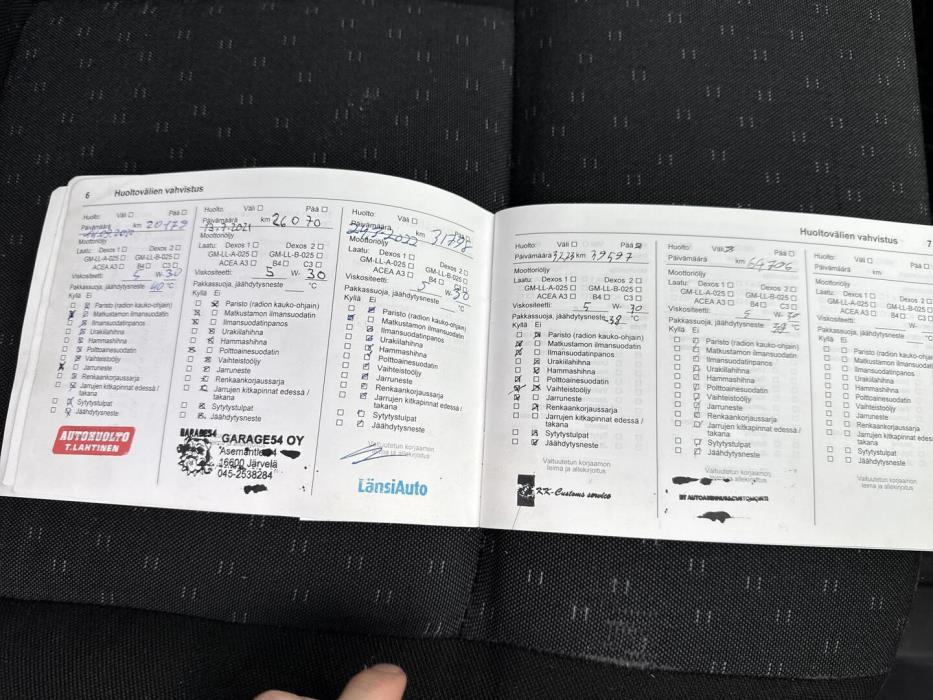 6 Huoltovälien vahvistus
Huolto: Väli ☐ Pää ☐
Päivämäärä km 20179
Moottoriöljy
Laatu: Dexos 1 ☐ Dexos 2 ☐
GM-LL-A-025 ☐ GM-LL-B-025 ☐
ACEA A3 ☐ B4 ☐ C3 ☐
Viskositeetti: 5 W- 30
Pakkassuoja, jäähdytysneste 40 °C
Kyllä Ei
Paristo (radion kauko-ohjain)
Matkustamon ilmansuodatin
Ilmansuodatinpanos
Urakiilahihna
Hammashihna
Polttoainesuodatin
Vaihteistoöljy
Jarruneste
Renkaankorjaussarja
Jarrujen kitkapinnat edessä /
takana
Sytytystulpat
Jäähdytysneste
AUTOHUOLTO
T.LAHTINEN
Huolto: Väli ☐ Pää ☐
Päivämäärä km 26070
13.7.2021
Moottoriöljy
Laatu: Dexos 1 ☐ Dexos 2 ☐
GM-LL-A-025 ☐ GM-LL-B-025 ☐
ACEA A3 ☐ B4 ☐ C3 ☐
Viskositeetti: 5 W- 30
Pakkassuoja, jäähdytysneste °C
Kyllä Ei
Paristo (radion kauko-ohjain)
Matkustamon ilmansuodatin
Ilmansuodatinpanos
Urakiilahihna
Hammashihna
Polttoainesuodatin
Vaihteistoöljy
Jarruneste
Renkaankorjaussarja
Jarrujen kitkapinnat edessä /
takana
Sytytystulpat
Jäähdytysneste
GARAGE54
GARAGE54 OY
Asemantie
16600 Järvelä
045-2538284
Huolto: Väli ☐ Pää ☐
Päivämäärä km
Moottoriöljy
Laatu: Dexos 1 ☐ Dexos 2 ☐
GM-LL-A-025 ☐ GM-LL-B-025 ☐
ACEA A3 ☐ B4 ☐ C3 ☐
Viskositeetti: 5 W- 30
Pakkassuoja, jäähdytysneste °C
Kyllä Ei
Paristo (radion kauko-ohjain)
Matkustamon ilmansuodatin
Ilmansuodatinpanos
Urakiilahihna
Hammashihna
Polttoainesuodatin
Vaihteistoöljy
Jarruneste
Renkaankorjaussarja
Jarrujen kitkapinnat edessä /
takana
Sytytystulpat
Jäähdytysneste
Valtuutetun korjaamon
leima ja allekirjoitus
LänsiAuto
Huoltovälien vahvistus 7
Huolto: Väli ☐ Pää
Päivämäärä km
Moottoriöljy
Laatu: Dexos 1 ☐ Dexos 2 ☐
GM-LL-A-025 ☐ GM-LL-B-025 ☐
ACEA A3 ☐ B4 ☐ C3 ☐
Viskositeetti: 5 W- 30
Pakkassuoja, jäähdytysneste -38 °C
Kyllä Ei
Paristo (radion kauko-ohjain)
Matkustamon ilmansuodatin
Ilmansuodatinpanos
Urakiilahihna
Hammashihna
Polttoainesuodatin
Vaihteistoöljy
Jarruneste
Renkaankorjaussarja
Jarrujen kitkapinnat edessä /
takana
Sytytystulpat
Jäähdytysneste
Valtuutetun korjaamon
leima ja allekirjoitus
KK-Customs service
Huolto: Väli Pää ☐
Päivämäärä km
Moottoriöljy
Laatu: Dexos 1 ☐ Dexos 2 ☐
GM-LL-A-025 ☐ GM-LL-B-025 ☐
ACEA A3 ☐ B4 ☐ C3 ☐
Viskositeetti: 5 W- 30
Pakkassuoja, jäähdytysneste °C
Kyllä Ei
Paristo (radion kauko-ohjain)
Matkustamon ilmansuodatin
Ilmansuodatinpanos
Urakiilahihna
Hammashihna
Polttoainesuodatin
Vaihteistoöljy
Jarruneste
Renkaankorjaussarja
Jarrujen kitkapinnat edessä /
takana
Sytytystulpat
Jäähdytysneste
Valtuutetun korjaamon
leima ja allekirjoitus
Huolto: Väli ☐
Päivämäärä km
Moottoriöljy
Laatu: Dexos 1 ☐ Dexos 2
GM-LL-A-025 ☐ GM-LL-B-025
ACEA A3 ☐ B4 ☐ C3
Viskositeetti: W-
Pakkassuoja, jäähdytysneste
Kyllä Ei
Paristo (radion kauko-ohjain)
Matkustamon ilmansuodatin
Ilmansuodatinpanos
Urakiilahihna
Hammashihna
Polttoainesuodatin
Vaihteistoöljy
Jarruneste
Renkaankorjaussarja
Jarrujen kitkapinnat edessä
takana
Sytytystulpat
Jäähdytysneste
Valtuutetun korjaamon
leima ja allekirjoitus